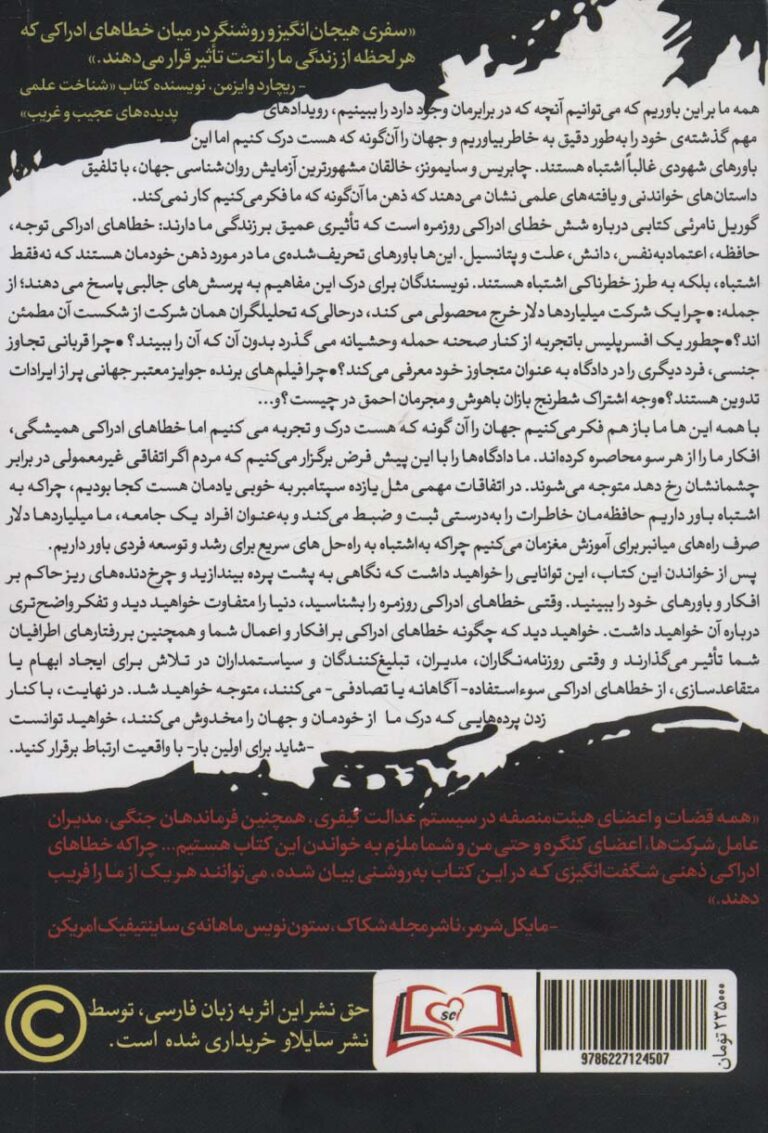 «سفری هیجان‌انگیز و روشنگر در میان خطاهای ادراکی که
هر لحظه از زندگی ما را تحت تأثیر قرار می‌دهند.»
- ریچارد وایزمن، نویسنده کتاب «شناخت علمی
پدیده‌های عجیب و غریب»
همه ما بر این باوریم که می‌توانیم آنچه که در برابرمان وجود دارد را ببینیم، رویدادهای
مهم گذشته‌ی خود را به‌طور دقیق به خاطر بیاوریم و جهان را آن‌گونه که هست درک کنیم اما این
باورهای شهودی غالباً اشتباه هستند. چابریس و سایمونز، خالقان مشهورترین آزمایش روان‌شناسی جهان، با تلفیق
داستان‌های خواندنی و یافته‌های علمی نشان می‌دهند که ذهن ما آن‌گونه که ما فکر می‌کنیم کار نمی‌کند.
گوریل نامرئی کتابی درباره شش خطای ادراکی روزمره است که تأثیری عمیق بر زندگی ما دارند: خطاهای ادراکی توجه،
حافظه، اعتمادبه‌نفس، دانش، علت و پتانسیل. این‌ها باورهای تحریف‌شده‌ی ما در مورد ذهن خودمان هستند که نه‌فقط
اشتباه، بلکه به طرز خطرناکی اشتباه هستند. نویسندگان برای درک این مفاهیم به پرسش‌های جالبی پاسخ می دهند؛ از
جمله: •چرا یک شرکت میلیاردها دلار خرج محصولی می کند، درحالی‌که تحلیلگران همان شرکت از شکست آن مطمئن
اند؟•چطور یک افسر پلیس باتجربه از کنار صحنه حمله وحشیانه می گذرد بدون آن که آن را ببیند؟ •چرا قربانی تجاوز
جنسی، فرد دیگری را در دادگاه به عنوان متجاوز خود معرفی می‌کند؟•چرا فیلم‌های برنده جوایز معتبر جهانی پر از ایرادات
تدوین هستند؟•وجه اشتراک شطرنج بازان باهوش و مجرمان احمق در چیست؟و...
با همه این ها ما باز هم فکر می‌کنیم جهان را آن گونه که هست درک و تجربه می کنیم اما خطاهای ادراکی همیشگی،
افکار ما را از هر سو محاصره کرده‌اند. ما دادگاه‌ها را با این پیش فرض برگزار می‌کنیم که مردم اگر اتفاقی غیرمعمولی در برابر
چشمانشان رخ دهد متوجه می‌شوند. در اتفاقات مهمی مثل یازده سپتامبر به خوبی یادمان هست کجا بودیم، چراکه به
اشتباه باور داریم حافظه‌مان خاطرات را به‌درستی ثبت و ضبط می‌کند و به‌عنوان افراد یک جامعه، ما میلیاردها دلار
صرف راه‌های میانبر برای آموزش مغزمان می‌کنیم چراکه به‌اشتباه به راه‌حل های سریع برای رشد و توسعه فردی باور داریم.
پس از خواندن این کتاب، این توانایی را خواهید داشت که نگاهی به پشت پرده بیندازید و چرخ‌دنده‌های ریز حاکم بر
افکار و باورهای خود را ببینید. وقتی خطاهای ادراکی روزمره را بشناسید، دنیا را متفاوت خواهید دید و تفکر واضح‌تری
درباره آن خواهید داشت. خواهید دید که چگونه خطاهای ادراکی بر افکار و اعمال شما و همچنین بر رفتارهای اطرافیان
شما تأثیر می‌گذارند و وقتی روزنامه‌نگاران، مدیران، تبلیغ‌کنندگان و سیاستمداران در تلاش برای ایجاد ابهام یا
متقاعدسازی، از خطاهای ادراکی سوءاستفاده- آگاهانه یا تصادفی- می‌کنند، متوجه خواهید شد. در نهایت، با کنار
زدن پرده‌هایی که درک ما از خودمان و جهان را مخدوش می‌کنند، خواهید توانست
-شاید برای اولین بار- با واقعیت ارتباط برقرار کنید.
«همه قضات و اعضای هیئت‌منصفه در سیستم عدالت کیفری، همچنین فرماندهان جنگی، مدیران
عامل شرکت‌ها، اعضای کنگره و حتی من و شما ملزم به خواندن این کتاب هستیم... چراکه خطاهای
ادراکی ذهنی شگفت‌انگیزی که در این کتاب به‌روشنی بیان شده، می‌توانند هر یک از ما را فریب
دهند.»
-مایکل شرمر، ناشر مجله شکاک، ستون نویس ماهانه‌ی ساینتیفیک امریکن
حق نشر این اثر به زبان فارسی، توسط
نشر سایلاو خریداری شده است.
©
sci
9786227124507
۲۳۵۰۰۰ تومان